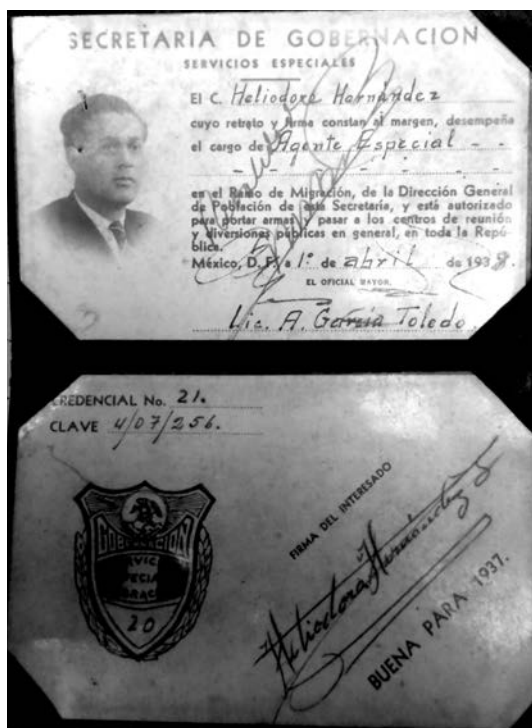 SECRETARIA DE GOBERNACION
SERVICIOS ESPECIALES
El C. Heliodoro Hernández
cuyo retrato y firma constan al margen, desempeña
el cargo de Agente Especial - -
- - - - - - - -
en el Ramo de Migración, de la Dirección General
de Población de esta Secretaría, y está autorizado
para portar armas y pasar a los centros de reunión
y diversiones públicas en general, en toda la Repú-
blica.
México, D. F., a 1º de abril de 1938.
EL OFICIAL MAYOR.
Lic. A. García Toledo.
CREDENCIAL No. 21.
CLAVE 4/07/256.
GOBERNACION
20
FIRMA DEL INTERESADO
Heliodoro Hernández
BUENA PARA 1937.